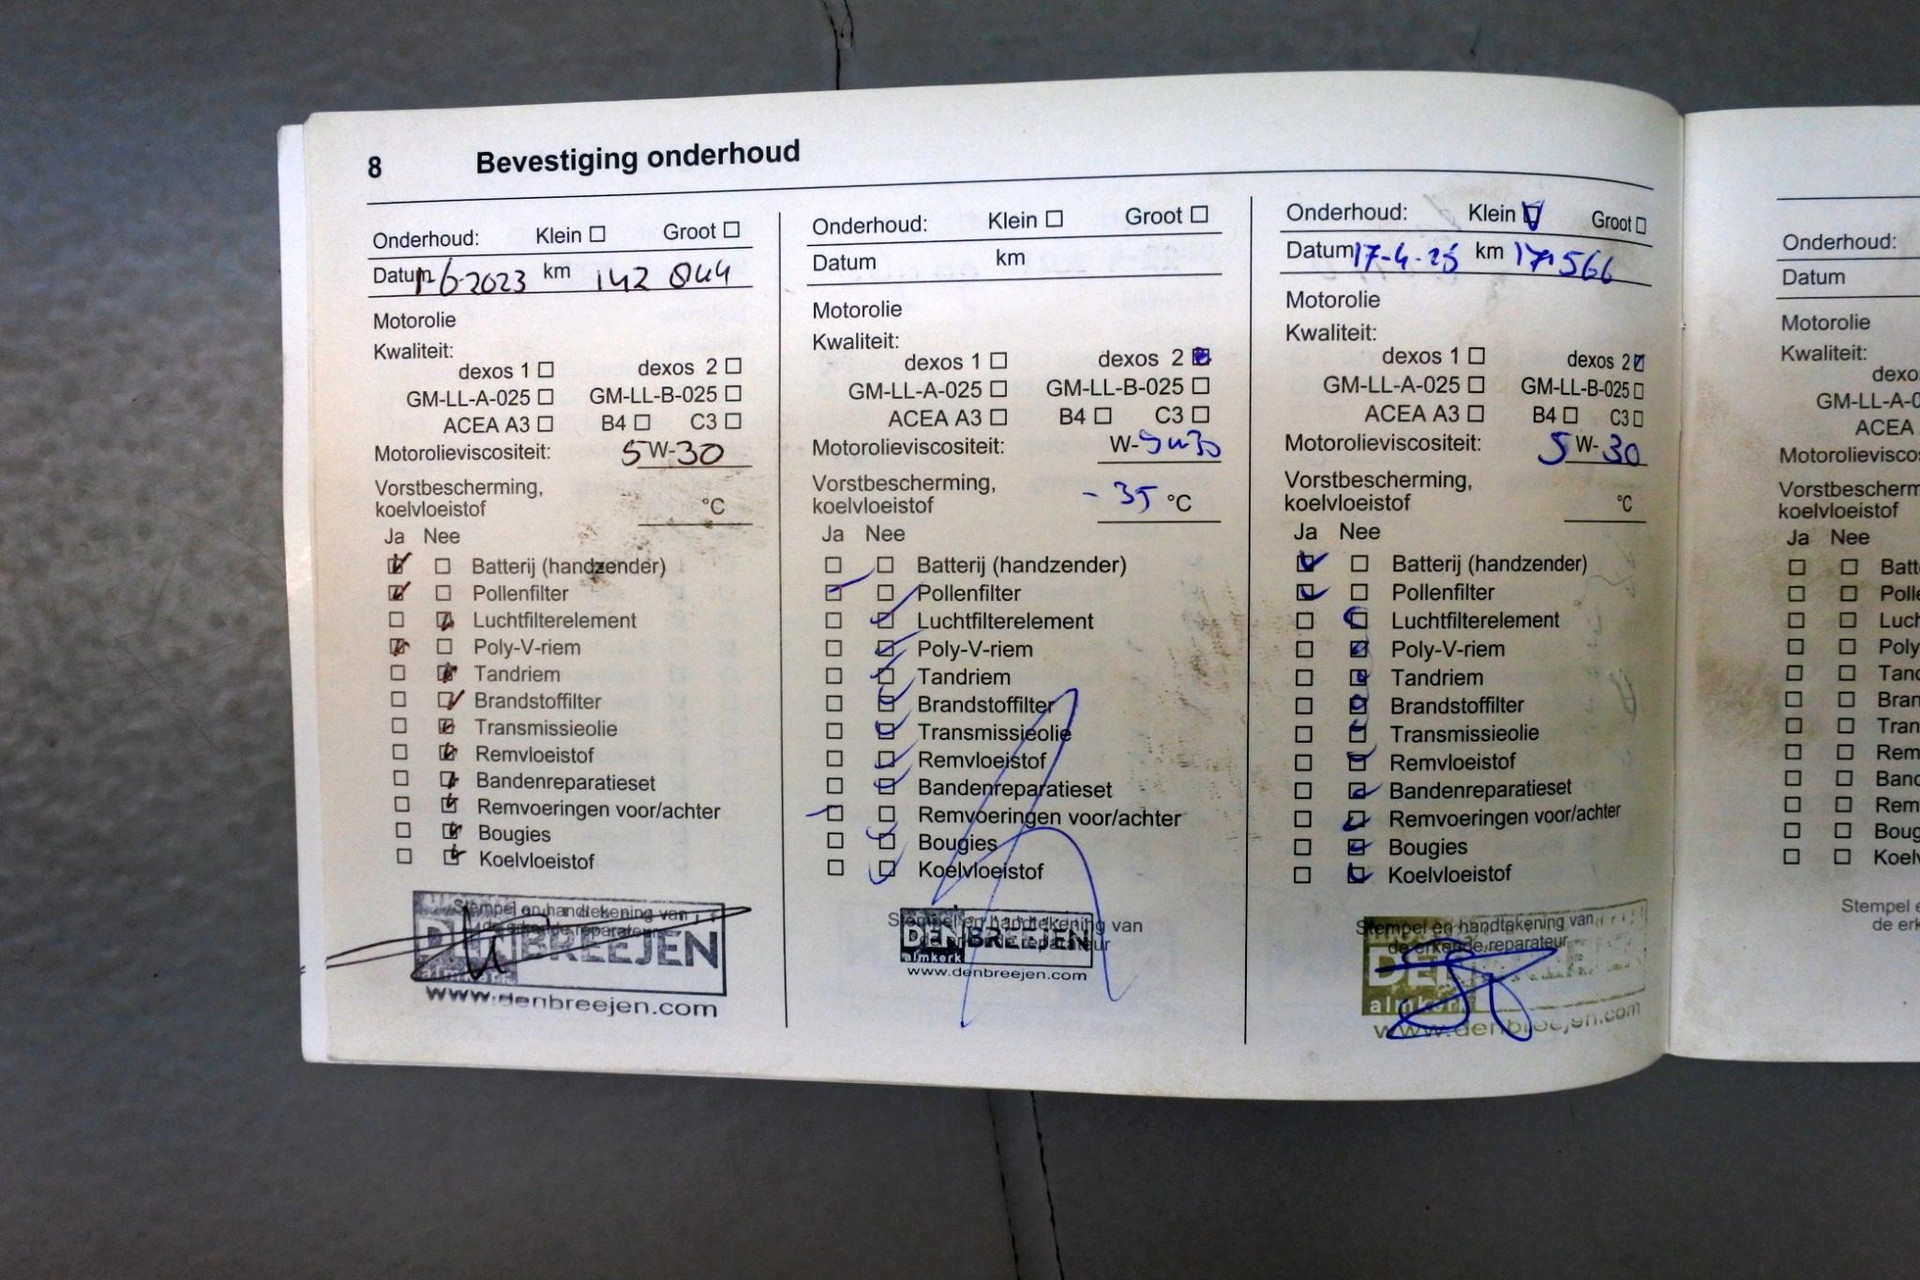 8 Bevestiging onderhoud
Onderhoud: Klein Groot
Datum 1-6-2023 km 142 044
Motorolie
Kwaliteit:
dexos 1 dexos 2
GM-LL-A-025 GM-LL-B-025
ACEA A3 B4 C3
Motorolieviscositeit: 5W-30
Vorstbescherming,
koelvloeistof °C
Ja Nee
Batterij (handzender)
Pollenfilter
Luchtfilterelement
Poly-V-riem
Tandriem
Brandstoffilter
Transmissieolie
Remvloeistof
Bandenreparatieset
Remvoeringen voor/achter
Bougies
Koelvloeistof
Stempel en handtekening van
de erkende reparateur
DEN BREEJEN
almkerk
www.denbreejen.com
Onderhoud: Klein Groot
Datum km
Motorolie
Kwaliteit:
dexos 1 dexos 2
GM-LL-A-025 GM-LL-B-025
ACEA A3 B4 C3
Motorolieviscositeit: W-5W30
Vorstbescherming,
koelvloeistof -35 °C
Ja Nee
Batterij (handzender)
Pollenfilter
Luchtfilterelement
Poly-V-riem
Tandriem
Brandstoffilter
Transmissieolie
Remvloeistof
Bandenreparatieset
Remvoeringen voor/achter
Bougies
Koelvloeistof
Stempel en handtekening van
de erkende reparateur
DEN BREEJEN
almkerk
www.denbreejen.com
Onderhoud: Klein Groot
Datum 17-4-25 km 171566
Motorolie
Kwaliteit:
dexos 1 dexos 2
GM-LL-A-025 GM-LL-B-025
ACEA A3 B4 C3
Motorolieviscositeit: 5W-30
Vorstbescherming,
koelvloeistof °C
Ja Nee
Batterij (handzender)
Pollenfilter
Luchtfilterelement
Poly-V-riem
Tandriem
Brandstoffilter
Transmissieolie
Remvloeistof
Bandenreparatieset
Remvoeringen voor/achter
Bougies
Koelvloeistof
Stempel en handtekening van
de erkende reparateur
DEN
almkerk
www.denbreejen.com
Onderhoud:
Datum
Motorolie
Kwaliteit:
dexo
GM-LL-A-0
ACEA
Motorolievisco
Vorstbescherm
koelvloeistof
Ja Nee
Batt
Polle
Luch
Poly
Tand
Bran
Tran
Rem
Band
Rem
Boug
Koelv
Stempel e
de erk